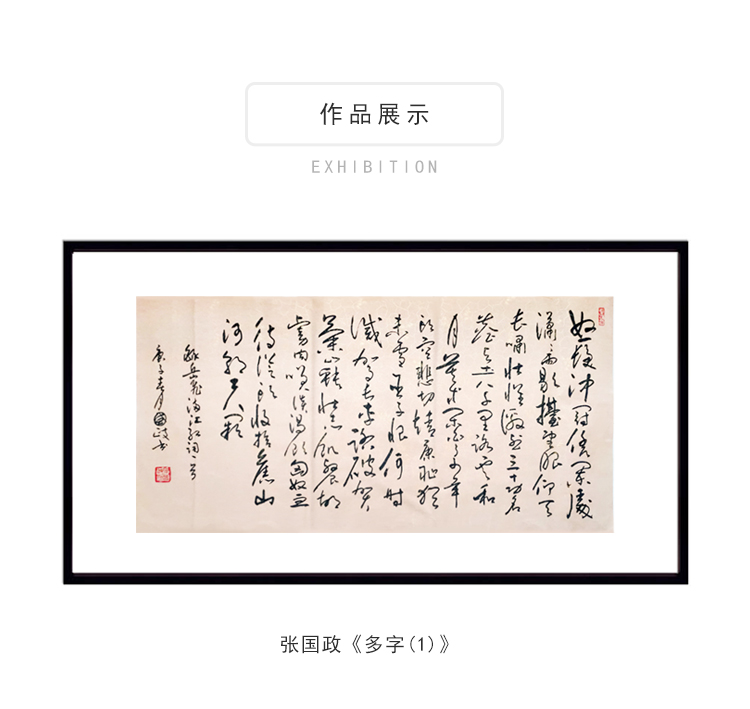 作品展示
EXHIBITION
怒髮沖冠憑闌處
潇潇雨歇擡望眼仰天
长嘯壮怀激烈三十功名
尘与土八千里路云和
月莫等闲白了少年
头空悲切靖康耻猶
未雪臣子恨何时
滅驾长车踏破贺
蘭山缺壮志飢餐胡
虜肉笑谈渴飲匈奴血
待從头收拾舊山
河朝天闕
錄岳飛满江红词一首
庚子春月國政书
张国政《多字(1)》